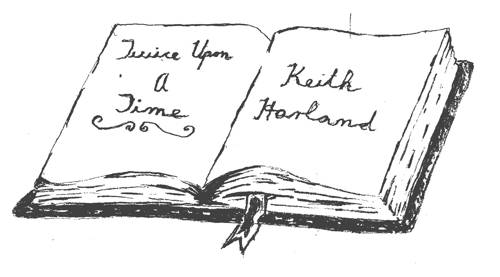 Twice Upon
A
Time
Keith
Harland